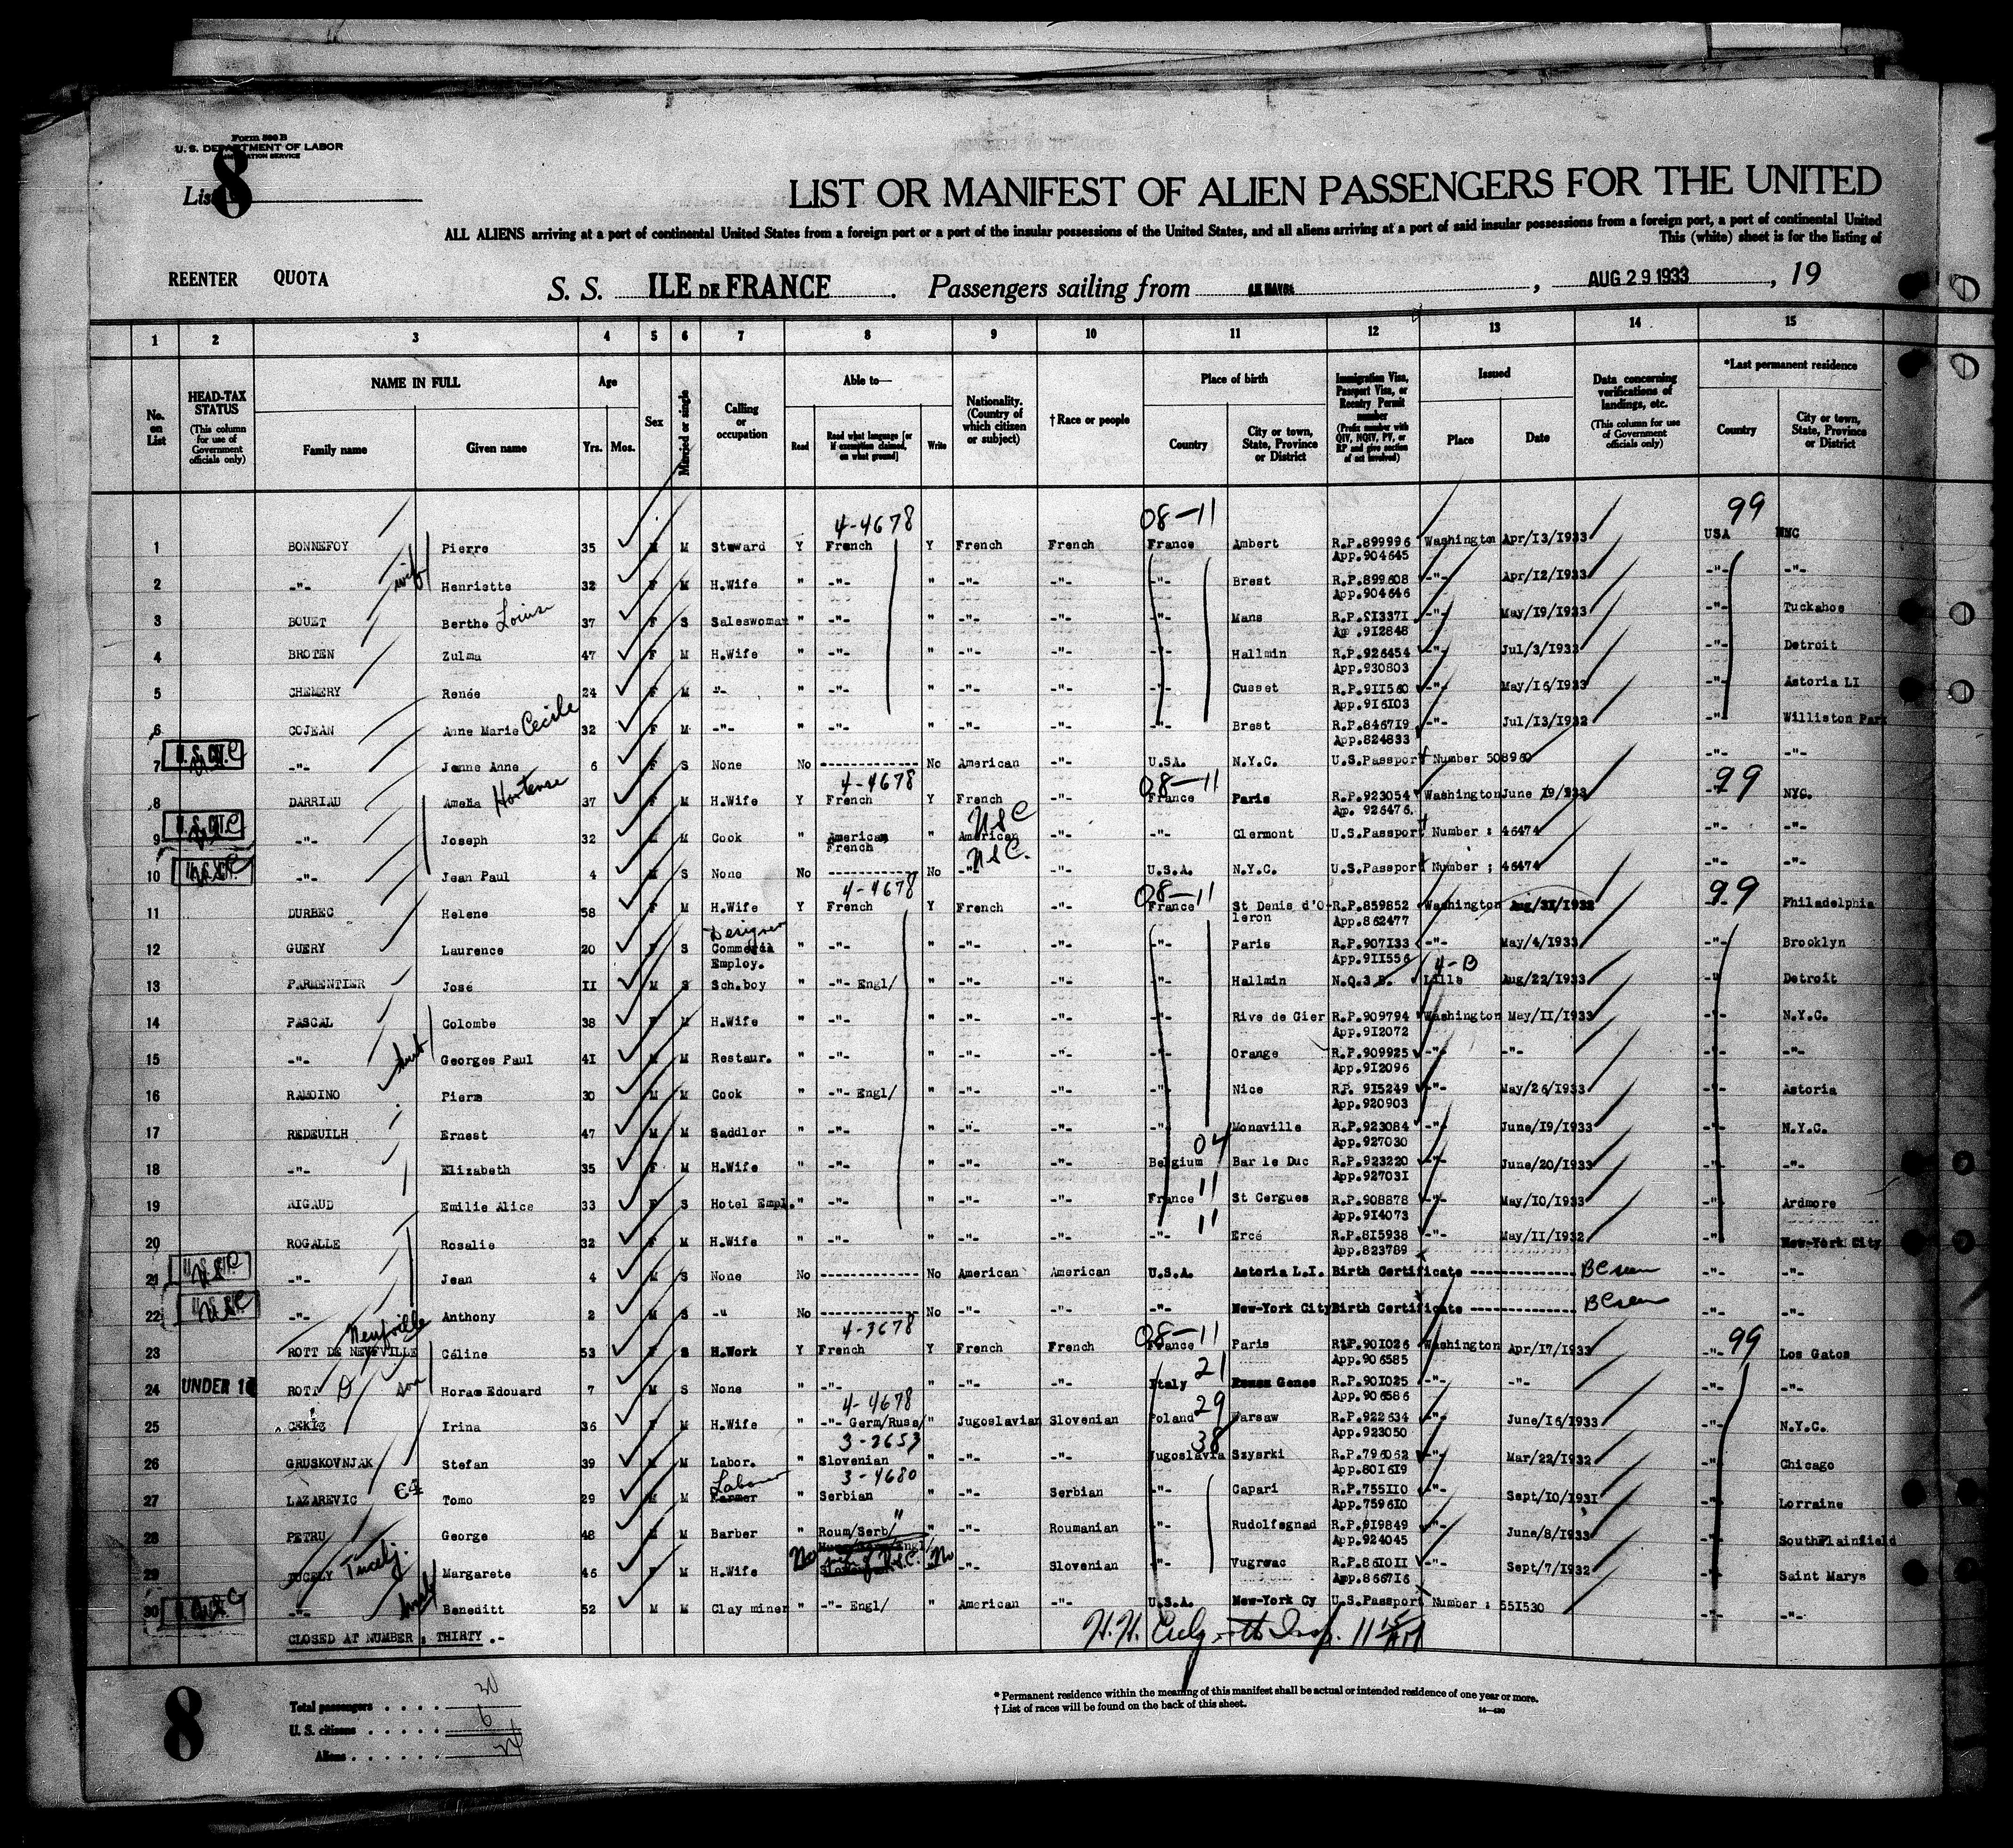 Form 500 B
U. S. DEPARTMENT OF LABOR
IMMIGRATION SERVICE
List 8
LIST OR MANIFEST OF ALIEN PASSENGERS FOR THE UNITED
ALL ALIENS arriving at a port of continental United States from a foreign port or a port of the insular possessions of the United States, and all aliens arriving at a port of said insular possessions from a foreign port, a port of continental United
This (white) sheet is for the listing of
REENTER QUOTA
S. S. ILE DE FRANCE. Passengers sailing from , AUG 29 1933, 19
1 2 3 4 5 6 7 8 9 10 11 12 13 14 15
No. on List
HEAD-TAX STATUS (This column for use of Government officials only)
NAME IN FULL Family name Given name
Age Yrs. Mos.
Sex
Married or single
Calling or occupation
Able to— Read Read what language [or if exemption claimed, on what ground] Write
Nationality. (Country of which citizen or subject)
†Race or people
Place of birth Country City or town, State, Province or District
Immigration Visa, Passport Visa, or Reentry Permit number (Prefix number with QIV, NQIV, PV, or RP and give section of act involved)
Issued Place Date
Data concerning verifications of landings, etc. (This column for use of Government officials only)
*Last permanent residence Country City or town, State, Province or District
4-4678 08-11 99
1 BONNEFOY Pierre 35 M M Steward Y French Y French French France Ambert R.P.899996 Washington Apr/13/1933 USA NYC
App.904645
2 -"- wife Henriette 32 F M H.Wife " -"- " -"- -"- -"- Brest R.P.899608 -"- Apr/12/1933 -"- -"-
App.904646
3 BOUET Berthe Louise 37 F S Saleswoman " -"- " -"- -"- -"- Mans R.P.913371 -"- May/19/1933 -"- Tuckahoe
Ap .912848
4 BROTEN Zulma 47 F M H.Wife " -"- " -"- -"- -"- Hallmin R.P.926454 -"- Jul/3/1933 -"- Detroit
App.930803
5 CHEMERY Renée 24 F M -"- " -"- " -"- -"- -"- Cusset R.P.911560 -"- May/16/1933 -"- Astoria LI
App.916103
6 COJEAN Anne Marie Cecile 32 F M -"- " -"- " -"- -"- -"- Brest R.P.846719 -"- Jul/13/1932 -"- Williston Park
App.824833
7 U.S.CIT. -"- Jenne Anne 6 F S None No ------------ No American -"- U.SA. N.Y.C. U.S.Passport Number 508960 -"- -"-
4-4678 08-11 99
8 DARRIAU Amelia Hortense 37 F M H.Wife Y French Y French -"- France Paris R.P.923054 Washington June 19/933 NYC.
Ap. 926476.
USC
9 U.S.CIT. -"- Joseph 32 M M Cook " American French " American -"- -"- Clermont U.S.Passport Number : 46474 -"- -"-
USC.
10 U.S.CIT. -"- Jean Paul 4 M S None No ------------ No -"- -"- U.S.A. N.Y.C. U.S.Passport Number ; 46474 -"- -"-
4-4678 08-11 99
11 DURBEC Helene 58 F M H.Wife Y French Y French -"- France St Denis d'O-leron R.P.859852 Washington Aug/31/1932 -"- Philadelphia
App.862477
Designer
12 GUERY Laurence 20 F S Commercia Employ. " -"- " -"- -"- -"- Paris R.P.907133 -"- May/4/1933 -"- Brooklyn
App.911556
4-B
13 PARMENTIER José II M S Sch.boy " -"- Engl/ " -"- -"- -"- Hallmin N.Q.3 B. Lille Aug/22/1933 -" Detroit
14 PASCAL Colombe 38 F M H.Wife " -"- " -"- -"- -"- Rive de Gier R.P.909794 Washington May/11/1933 -"- N.Y.C.
App.912072
15 -"- Georges Paul 41 M M Restaur. " -"- " -"- -"- -"- Orange R.P.909925 -"- -"- -"- -"-
App.912096
16 RAMOINO Pierre 30 M M Cook " -"- Engl/ " -"- -"- -"- Nice RP. 915249 -"- May/26/1933 -"- Astoria
App.920903
17 REDEUILH Ernest 47 M M Saddler " -"- " -"- -"- -"- Monaville R.P.923084 -"- June/19/1933 -"- N.Y.C.
App.927030
04
18 -"- Elizabeth 35 F M H.Wife " -"- " -"- -"- Belgium Bar le Duc R.P.923220 -"- June/20/1933 -"- -"-
App.927031
11
19 RIGAUD Emilie Alice 33 F S Hotel Empl. " -"- " -"- -"- France St Cergues R.P.908878 -"- May/10/1933 -"- Ardmore
App.914073
11
20 ROGALLE Rosalie 32 F M H.Wife " -"- " -"- -"- -"- Ercé R.P.815938 -"- May/11/1932 -"- New-York City
App.823789
21 -"- Jean 4 M S None No ------------ No American American U.S.A. Astoria L.I. Birth Certificate ------------ BC seen -"- -"-
22 -"- Anthony 2 M S -" No ------------ No -"- -"- -"- New-York City Birth Certificate ------------ BC seen -"- -"-
Neufville 4-3678 08-11 99
23 ROTT DE NEVEVILLE Céline 53 F S H.Work Y French Y French French France Paris R.P.901026 Washington Apr/17/1933 -"- Los Gatos
App.906585
21
24 UNDER 16 ROTT D son Horace Edouard 7 M S None " -"- " -"- -"- Italy Genes R.P.901025 -"- -"- -"- -"-
App.906586
4-4678 29
25 CEKIS Irina 36 F M H.Wife " -"- Germ/Russ/ " Jugoslavian Slovenian Poland Warsaw R.P.922634 -"- June/16/1933 -"- N.Y.C.
App.923050
3-2653 38
26 GRUSKOVNJAK Stefan 39 M M Labor. " Slovenian " -"- -"- Jugoslavia Szyerki R.P.796062 -"- Mar/22/1932 -"- Chicago
App.801619
Laborer 3-4680
27 LAZAREVIC Tomo 29 M M Farmer " Serbian " -"- Serbian -"- Capari R.P.755110 -"- Sept/10/1931 -"- Lorraine
App.759610
28 PETRU George 48 M M Barber " Roum/Serb/ " -"- Roumanian -"- Rudolfsgnad R.P.919849 -"- June/8/1933 -"- SouthPlainfield
App.924045
29 TUCELY Tucelj. Margarete 46 F M H.Wife No wife of U.S.C. No -"- Slovenian -"- Vugrwac R.P.861011 -"- Sept/7/1932 -"- Saint Marys
App.866716
30 -"- husb Beneditt 52 M M Clay miner " -"- Engl/ " American -"- U.S.A. New-York Cy U.S.Passport Number : 551530 -"- -"-
CLOSED AT NUMBER ; THIRTY .-
8
Total passengers . . . . 30
U. S. citizens . . . . . 6
Aliens . . . . . . 24
* Permanent residence within the meaning of this manifest shall be actual or intended residence of one year or more.
† List of races will be found on the back of this sheet.
14—430